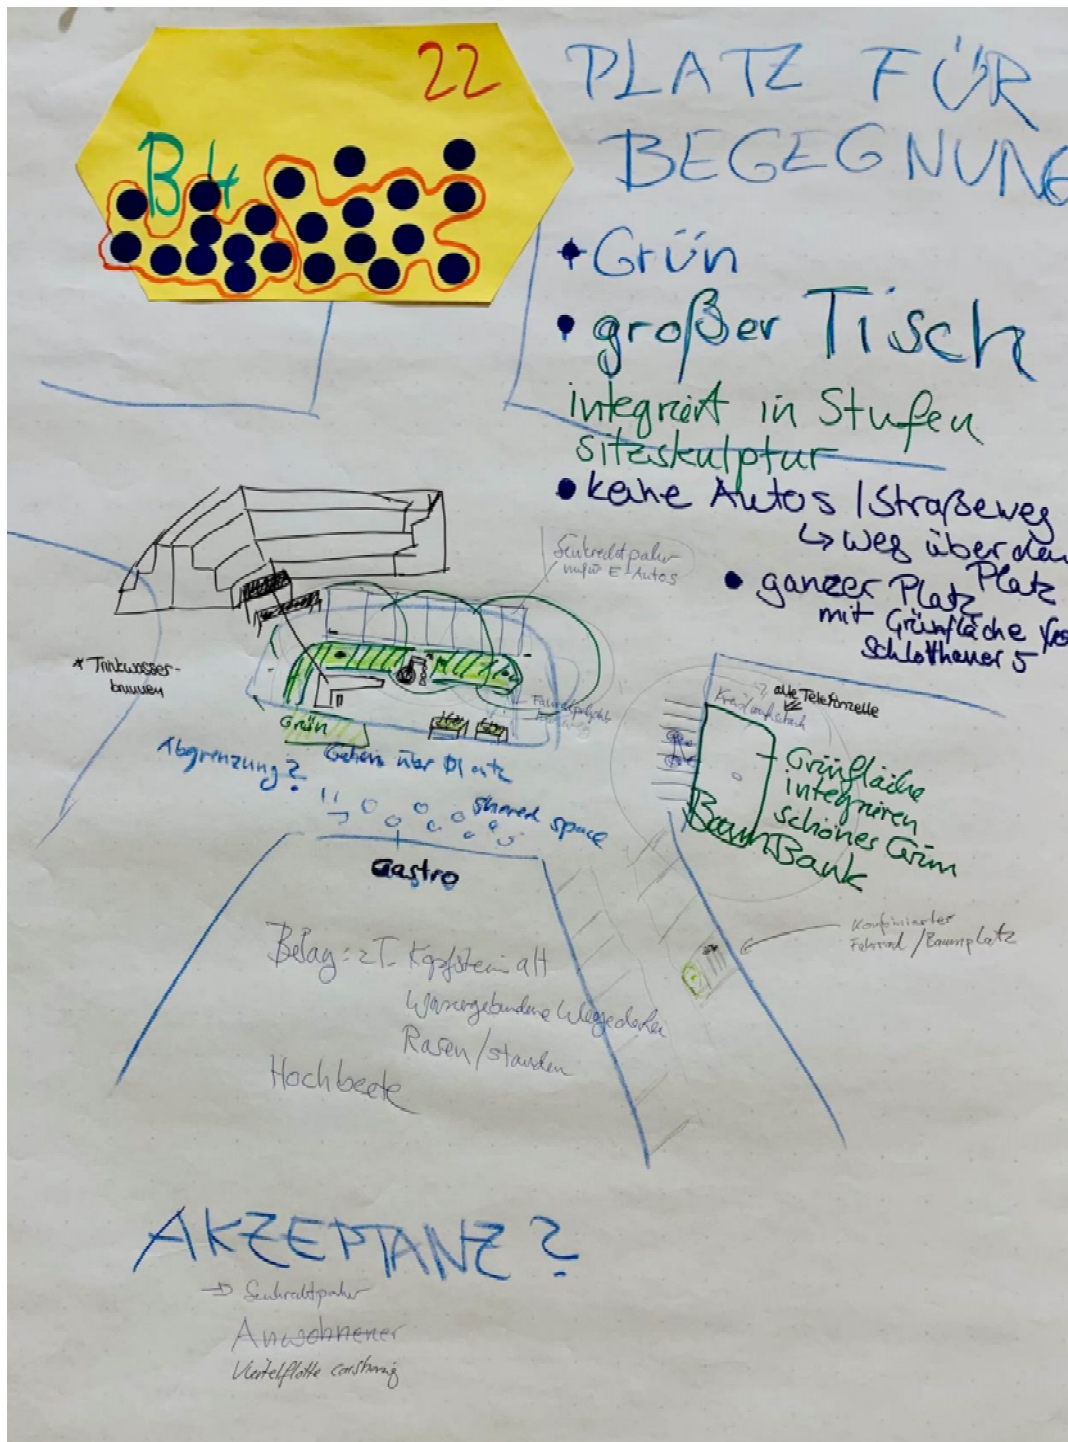 22
B4
PLATZ FÜR
BEGEGNUNG
Grün
großer Tisch
integriert in Stufen
sitzskulptur
keine Autos / Straße weg
↳ weg über den
Platz
ganzer Platz
mit Grünfläche vor
Schlotthauer 5
Senkrechtparker
nur für E-Autos
* Trinkwasser-
brunnen
Grün
Abgrenzung?
Gehen über Platz
shared space
Gastro
alte Telefonzelle
Grünfläche
integrieren
schönes Grün
Baum Bank
Kombinierter
Fahrrad / Baumplatz
Belag: z.T. Kopfstein alt
Wassergebundene Wegedecke
Rasen / Stauden
Hochbeete
AKZEPTANZ?
→ Senkrechtparker
Anwohnener